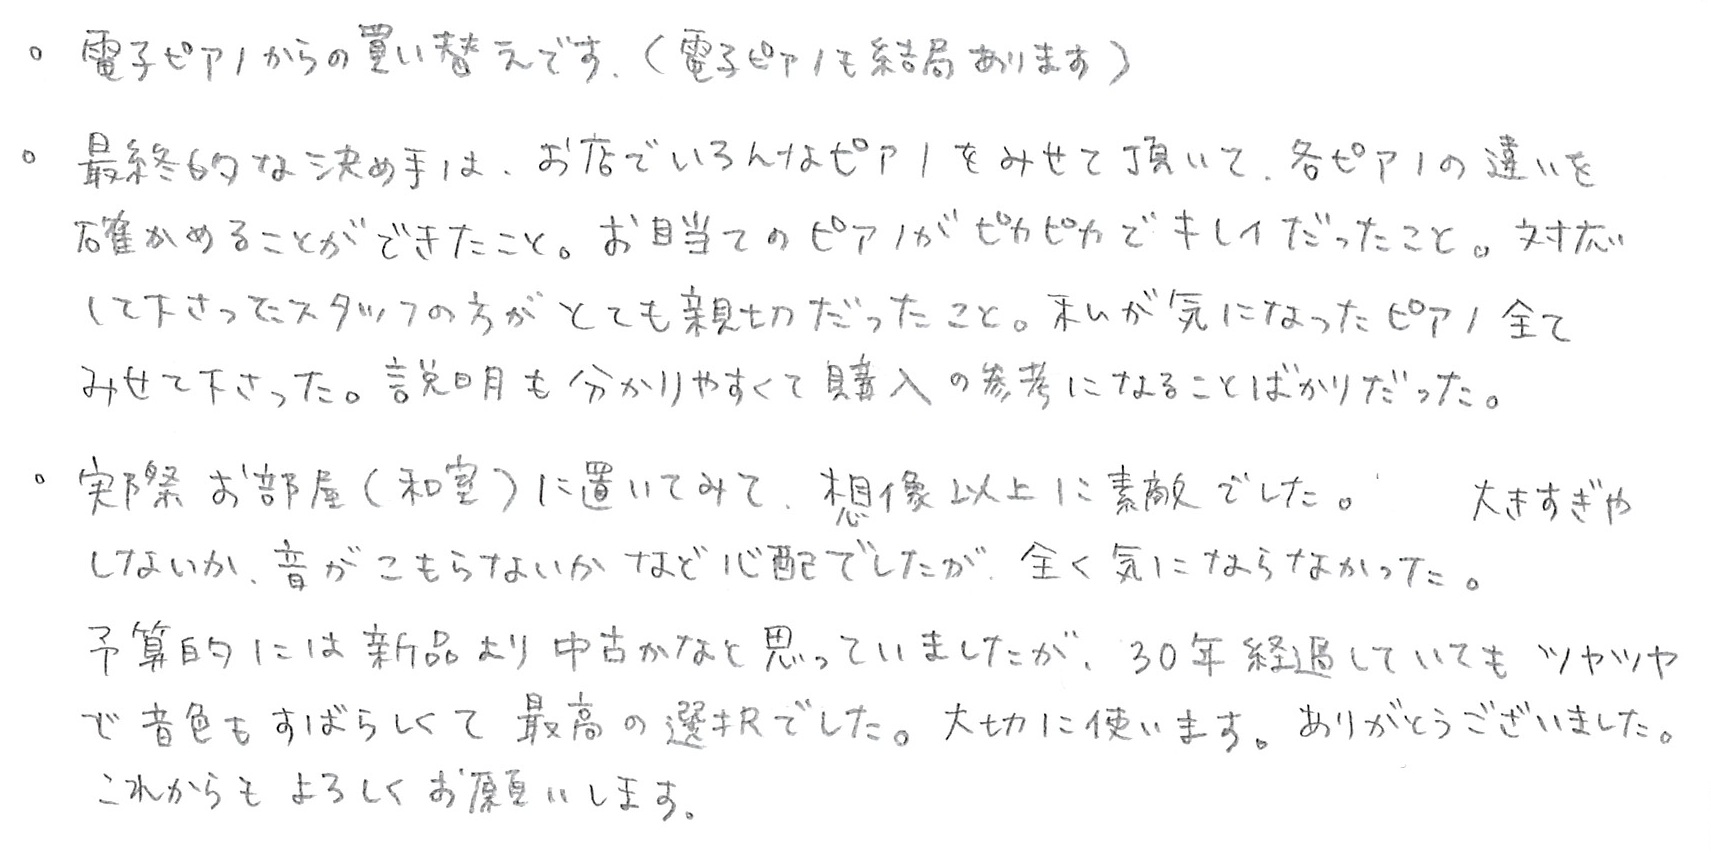 。電子ピアノからの買い替えです.（電子ピアノも結局あります）
。最終的な決め手は、お店でいろんなピアノをみせて頂いて、各ピアノの違いを
確かめることができたこと。お目当てのピアノがピカピカでキレイだったこと。対応
して下さったスタッフの方がとても親切だったこと。私が気になったピアノ全て
みせて下さった。説明も分かりやすくて購入の参考になることばかりだった。
。実際お部屋（和室）に置いてみて、想像以上に素敵でした。 大きすぎや
しないか、音がこもらないかなど心配でしたが、全く気にならなかった。
予算的には新品より中古かなと思っていましたが、30年経過していてもツヤツヤ
で音色もすばらしくて最高の選択でした。大切に使います。ありがとうございました。
これからもよろしくお願いします。